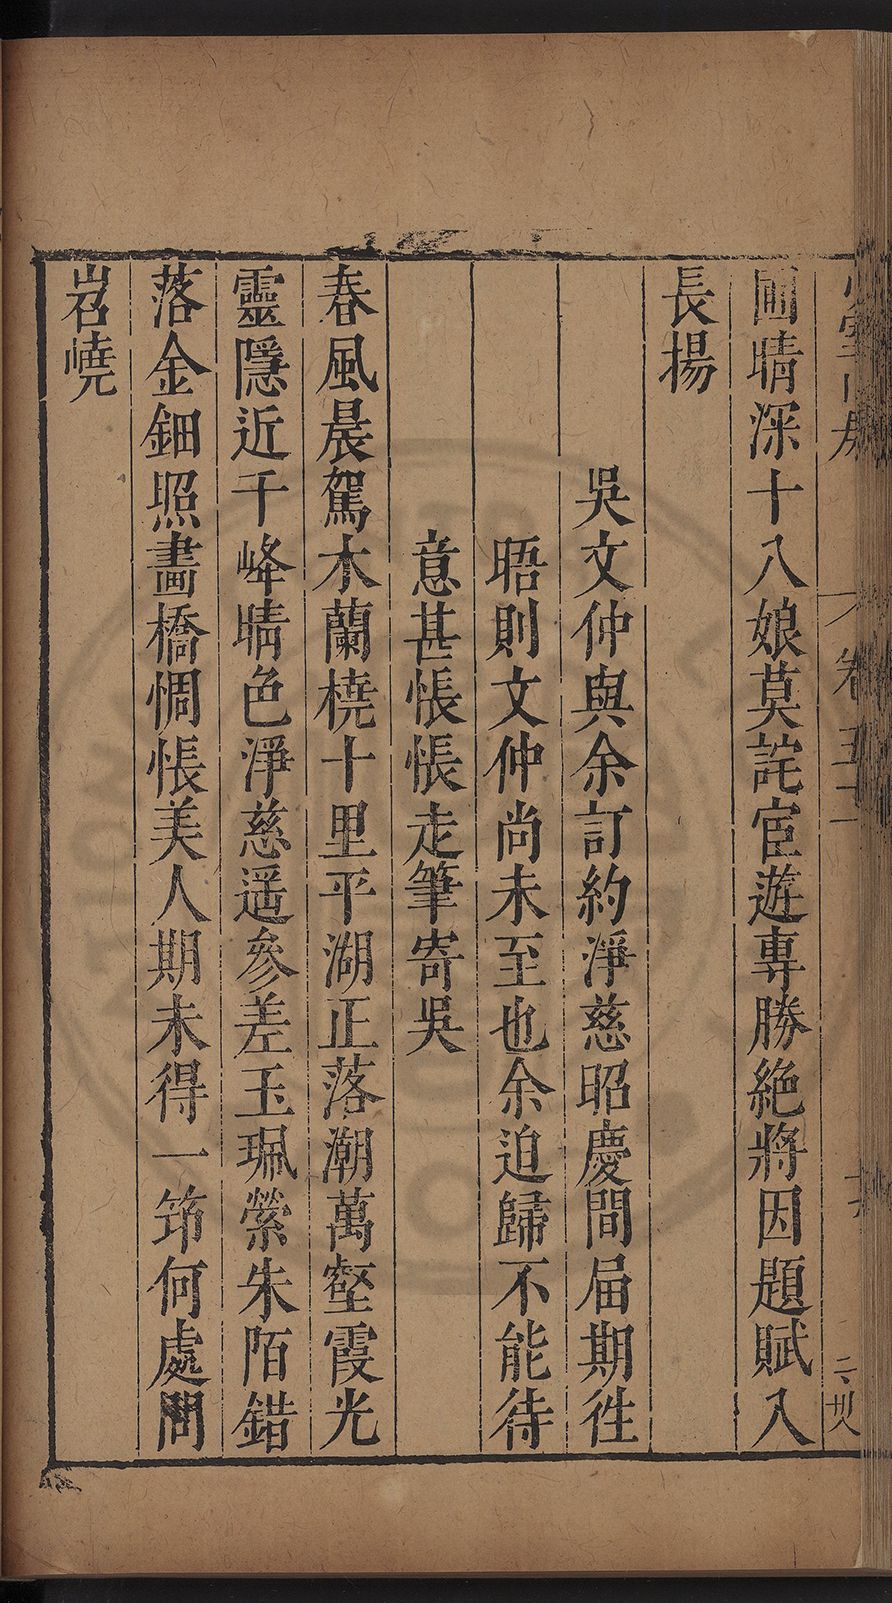 圃晴深十八娘莫詫宦遊專勝絶將因題賦入
長揚
吳文仲與余訂約淨慈昭慶間届期徃
晤則文仲尚未至也余迫歸不能待
意甚悵悵走筆寄吳
春風晨駕木蘭橈十里平湖正落潮萬壑霞光
靈隱近千峰晴色淨慈遥參差玉珮縈朱陌錯
落金鈿照畫橋惆悵美人期未得一笻何處問
岧嶢